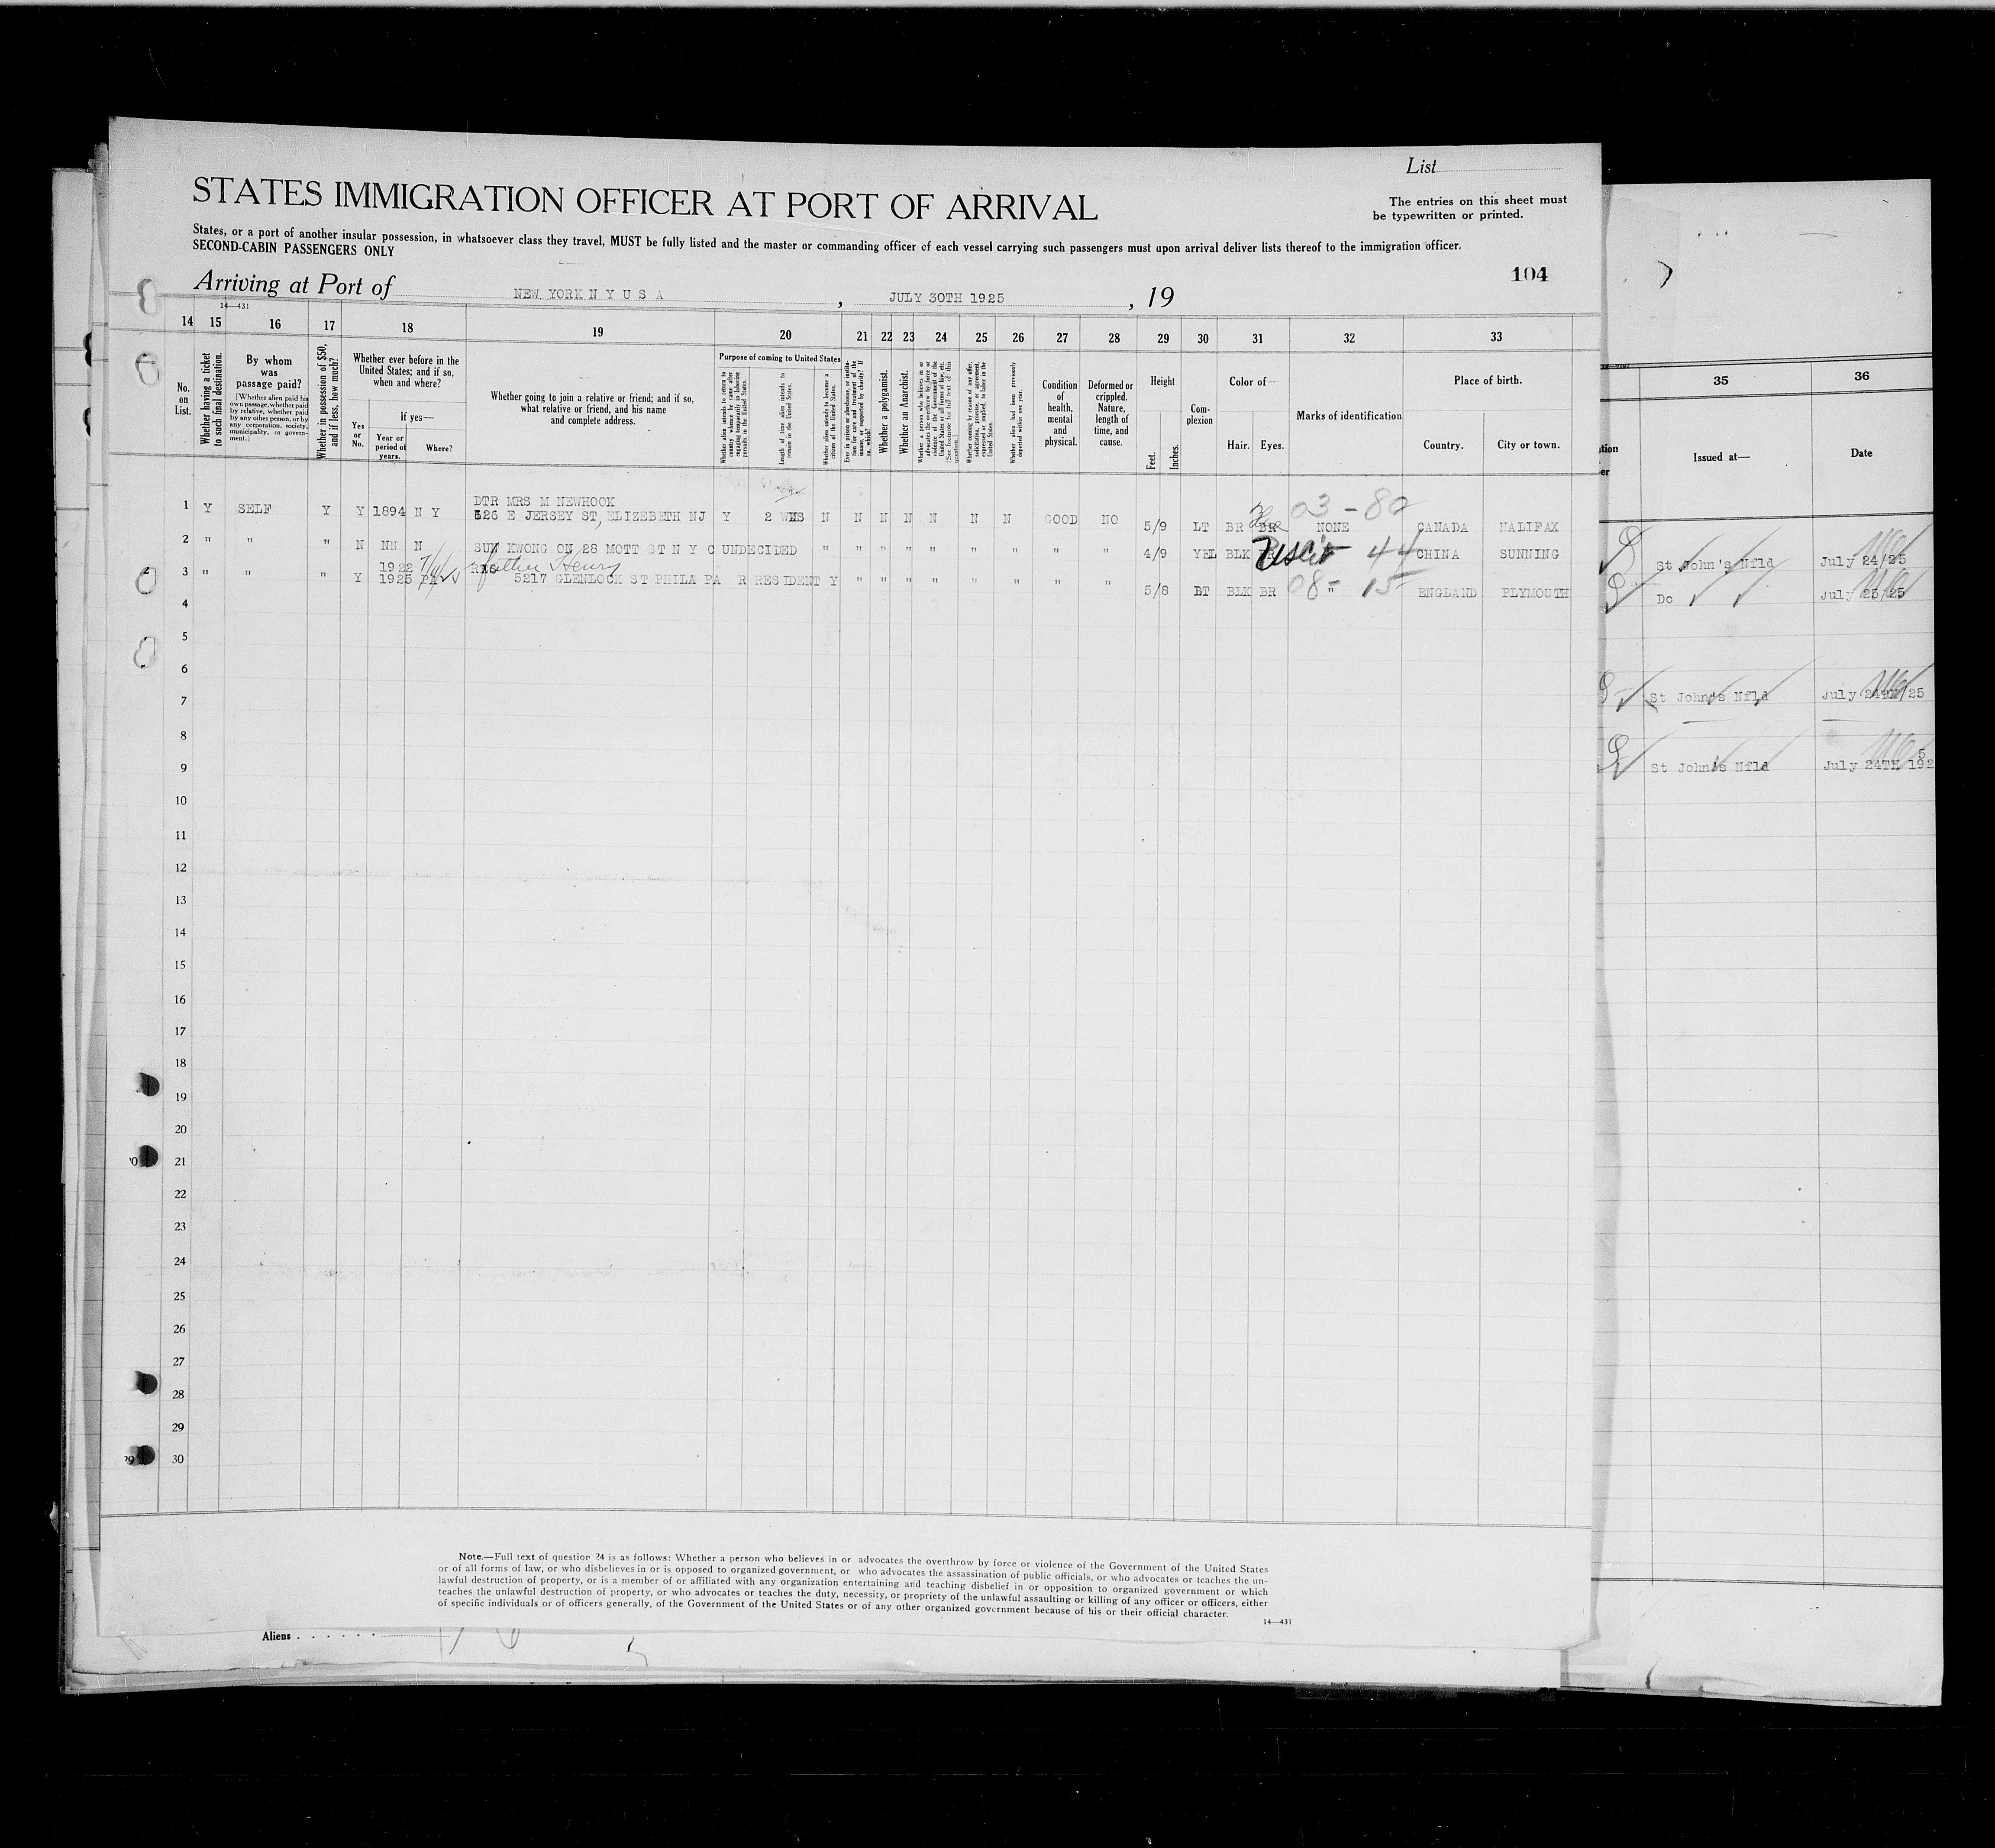 List
STATES IMMIGRATION OFFICER AT PORT OF ARRIVAL
The entries on this sheet must
be typewritten or printed.
States, or a port of another insular possession, in whatsoever class they travel, MUST be fully listed and the master or commanding officer of each vessel carrying such passengers must upon arrival deliver lists thereof to the immigration officer.
SECOND-CABIN PASSENGERS ONLY
104
Arriving at Port of NEW YORK N Y U S A , JULY 30TH 1925 , 19
14—431
14 15 16 17 18 19 20 21 22 23 24 25 26 27 28 29 30 31 32 33
35 36
No. on List.
Whether having a ticket to such final destination.
By whom was passage paid?
[Whether alien paid his own passage, whether paid by relative, whether paid by any other person, or by any corporation, society, municipality, or government.]
Whether in possession of $50, and if less, how much?
Whether ever before in the United States; and if so, when and where?
Yes or No.
If yes—
Year or period of years.
Where?
Whether going to join a relative or friend; and if so, what relative or friend, and his name and complete address.
Purpose of coming to United States
Whether alien intends to return to country whence he came after engaging temporarily in laboring pursuits in the United States.
Length of time alien intends to remain in the United States.
Whether alien intends to become a citizen of the United States.
Ever in prison or almshouse, or institution for care and treatment of the insane, or supported by charity? If so, which?
Whether a polygamist.
Whether an Anarchist.
Whether a person who believes in or advocates the overthrow by force or violence of the Government of the United States or all forms of law, etc. [See footnote for full text of this question.]
Whether coming by reason of any offer, solicitation, promise, or agreement, expressed or implied, to labor in the United States.
Whether alien had been previously deported within one year.
Condition of health, mental and physical.
Deformed or crippled. Nature, length of time, and cause.
Height
Feet. Inches.
Complexion
Color of—
Hair. Eyes.
Marks of identification
Place of birth.
Country. City or town.
Issued at—
Date
03-80
DTR MRS M NEWHOOK
1 Y SELF Y Y 1894 N Y 526 E JERSEY ST, ELIZEBETH NJ Y 2 WKS N N N N N N N GOOD NO 5/9 LT BR BR NONE CANADA HALIFAX
2 " " " N NN N SUN KWONG ON 28 MOTT ST N Y C UNDECIDED " " " " " " " " " 4/9 YEL BLK 44 CHINA SUNNING
1922 father Henry
3 " " " Y 1925 5217 GLENLOCK ST PHILA PA R RESIDENT Y " " " " " " " " 5/8 BT BLK BR 08- " 15 ENGLAND PLYMOUTH
4
5
6
7
8
9
10
11
12
13
14
15
16
17
18
19
20
21
22
23
24
25
26
27
28
29
30
St John's Nfld July 24/25
Do July 25/25
St John's Nfld July 24TH/25
St John's Nfld July 24TH 1925
Note.—Full text of question 24 is as follows: Whether a person who believes in or advocates the overthrow by force or violence of the Government of the United States
or of all forms of law, or who disbelieves in or is opposed to organized government, or who advocates the assassination of public officials, or who advocates or teaches the un-
lawful destruction of property, or is a member of or affiliated with any organization entertaining and teaching disbelief in or opposition to organized government or which
teaches the unlawful destruction of property, or who advocates or teaches the duty, necessity, or propriety of the unlawful assaulting or killing of any officer or officers, either
of specific individuals or of officers generally, of the Government of the United States or of any other organized government because of his or their official character.
14—431
Aliens